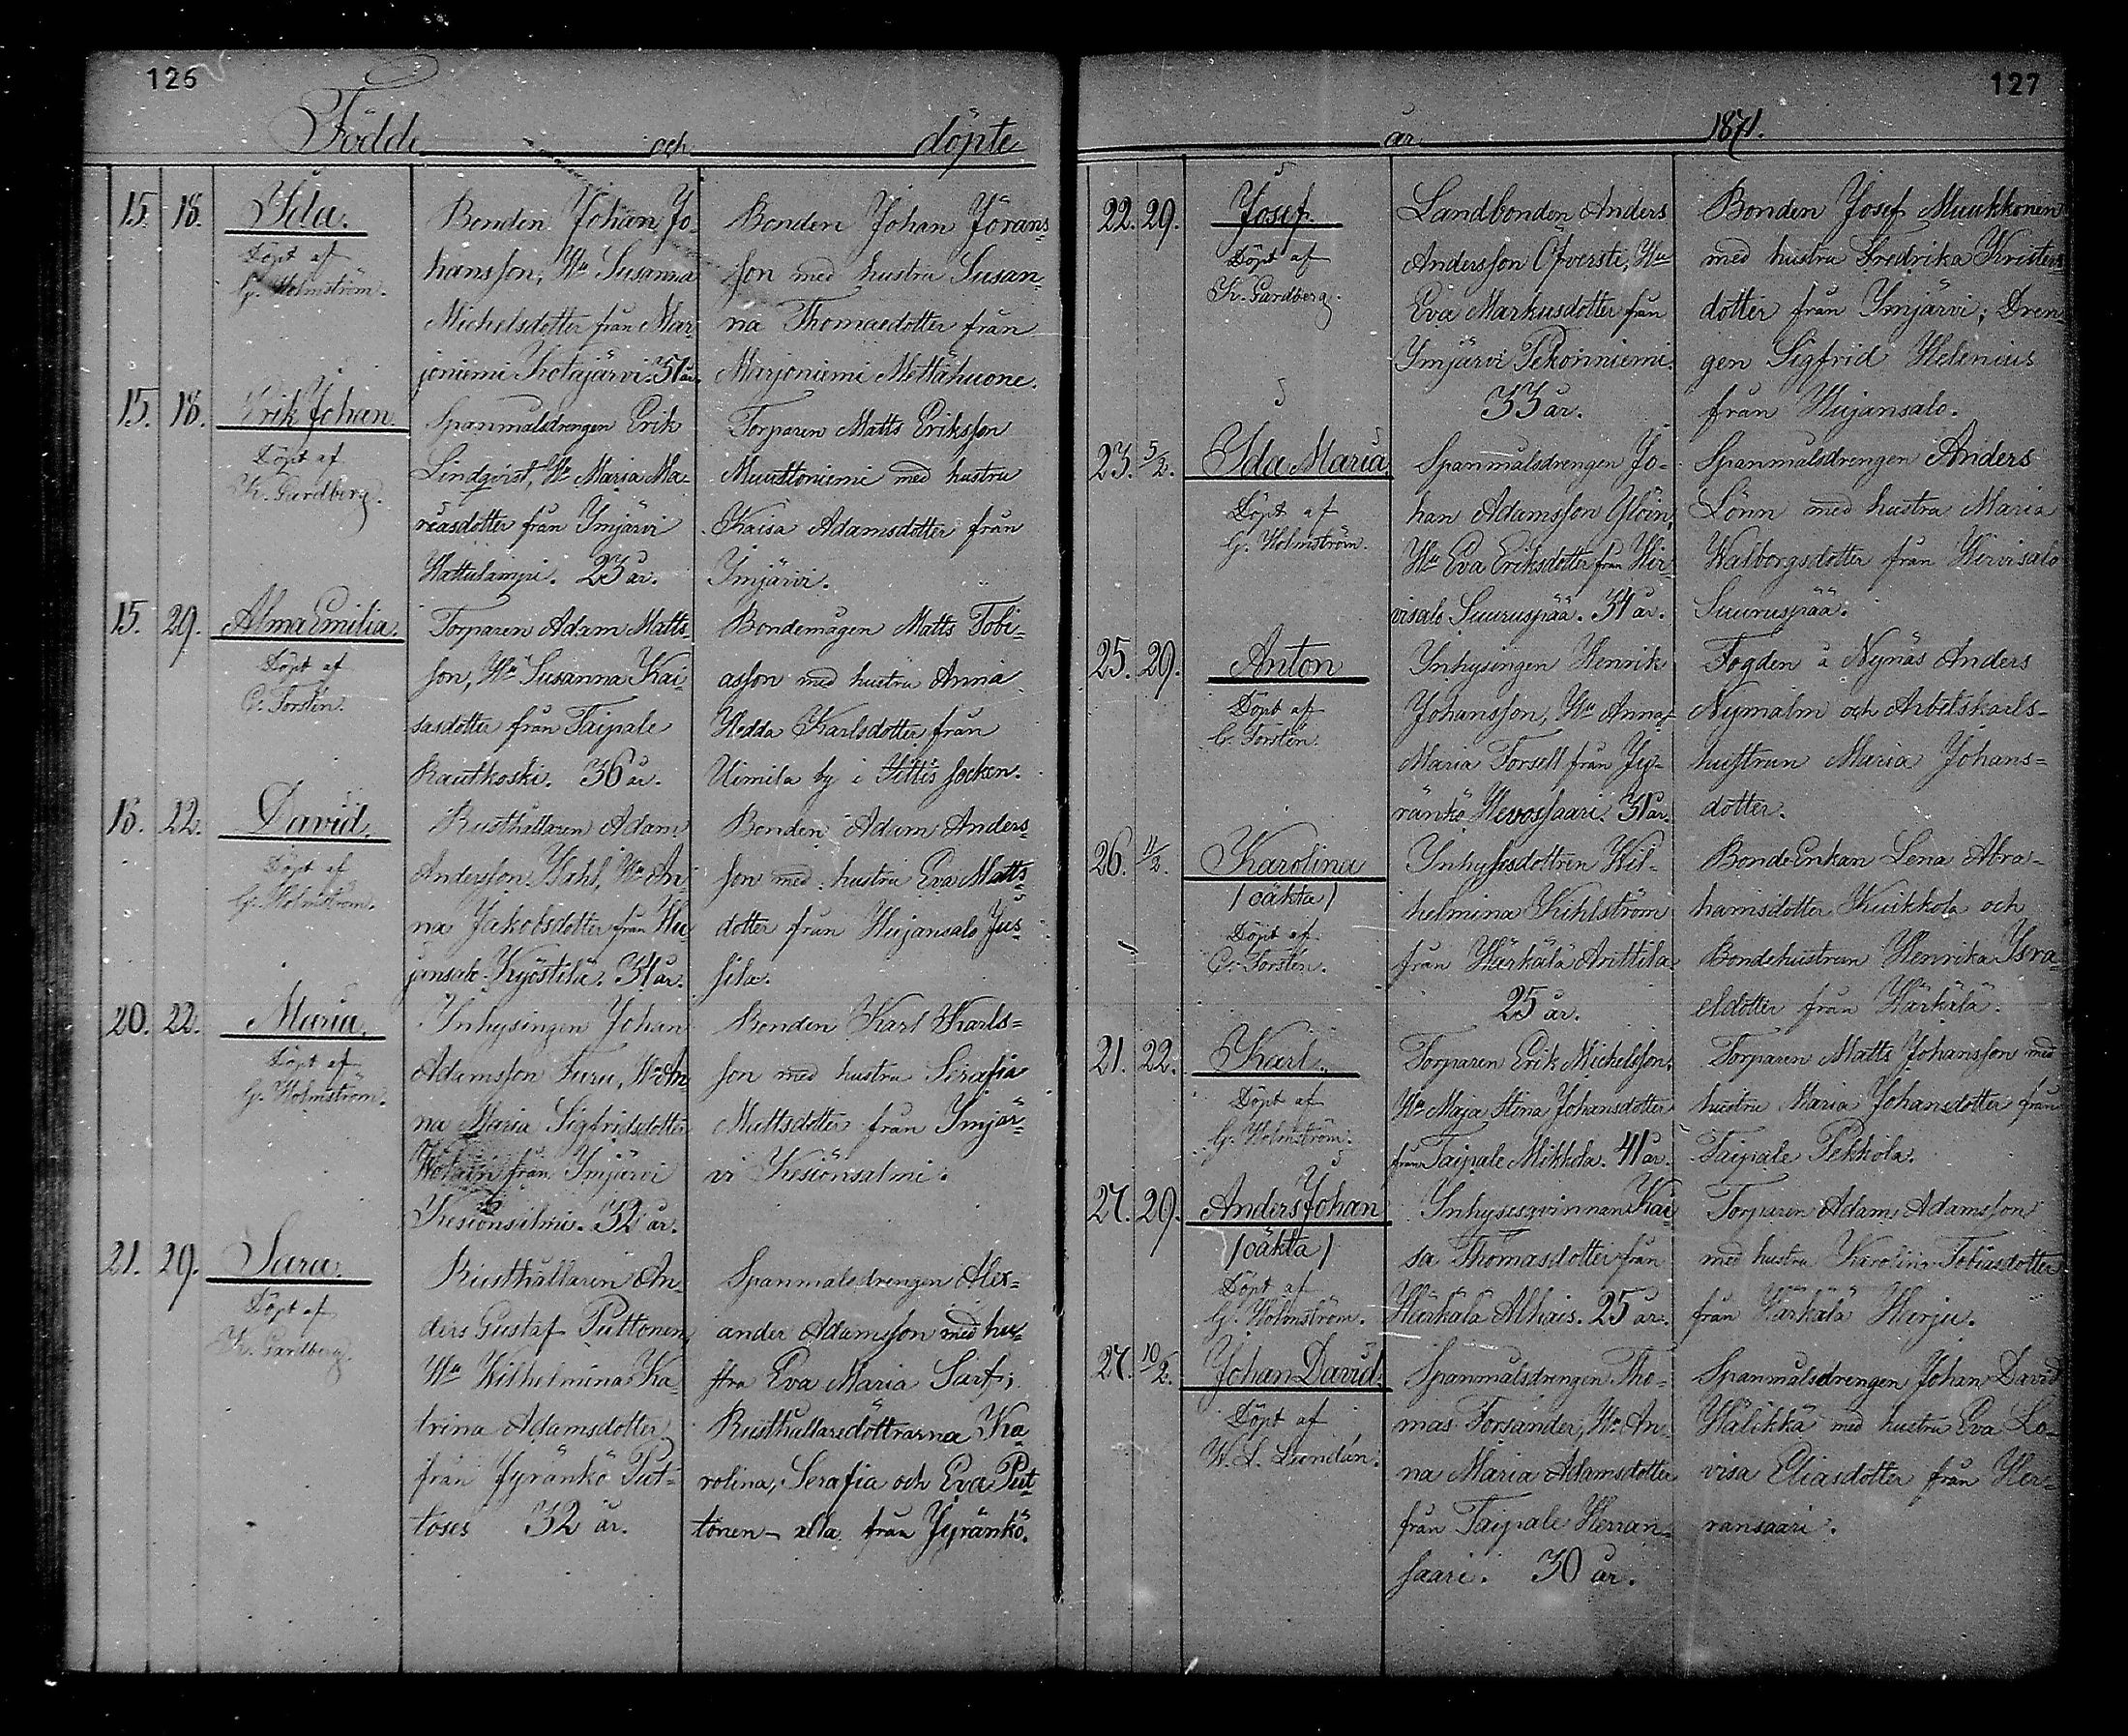 126
Födde och döpte
15. 18. Ida.
Döpt af
G. Holmström.
Bonden Johan Jo-
hansson, Hu Susanna
Michelsdotter från Mar-
joniemi Kotajärvi. 31 år.
Bonden Johan Jörans-
son med hustru Susan-
na Thomasdotter från
Marjoniemi Mettähuone.
15. 18. Erik Johan.
Döpt af
K. Gardberg.
Spanmålsdrengen Erik
Lindqvist, Hu Maria Ma-
riasdotter från Ymjärvi
Wattulampi. 23 år.
Torparen Matts Eriksson
Muustoniemi med hustru
Kaisa Adamsdotter från
Ymjärvi.
15. 29. Alma Emilia.
Döpt af
C. Forstén.
Torparen Adam Matts-
son, Hu Susanna Kai-
sasdotter från Taipale
Rautkoski. 36 år.
Bondemågen Matts Tobi-
asson med hustru Anna
Hedda Karlsdotter från
Uimila by i Sittis socken.
16. 22. David.
Döpt af
G. Holmström.
Rusthållaren Adam
Andersson Wahl, Hu An-
na Jakobsdotter från Hu-
jansalo Kyöstilä. 31 år.
Bonden Adam Anders-
son med hustru Eva Matts-
dotter från Hujansalo Jus-
sila.
20. 22. Maria.
Döpt af
G. Holmström.
Ynhysingen Johan
Adamsson Furu, Hu An-
na Maria Sigfridsdotter
från Ymjärvi
Kesiönsalmi. 32 år.
Bonden Karl Karls-
son med hustru Serafia
Mattsdotter från Ymjär-
vi Kesiönsalmi.
21. 29. Sara.
Döpt af
K. Gardberg.
Rusthållaren An-
ders Gustaf Puttonen,
Hu Wilhelmina Ka-
trina Adamsdotter
från Jyränkö Put-
toses 32 år.
Spanmålsdrengen Alex-
ander Adamsson med hu-
stru Eva Maria Sart;
Rusthållaredöttrarna Ka-
rolina, Serafia och Eva Put-
tonen – alla från Jyränkö.
127
år 1871.
22. 29. Josef
Döpt af
K. Gardberg.
Landbonden Anders
Andersson Öfversti, Hu
Eva Markusdotter från
Ymjärvi Pekonniemi.
33 år.
Bonden Josef Muukkonen
med hustru Fredrika Kristers-
dotter från Ymjärvi; Dren-
gen Sigfrid Helenius
från Hujansalo.
23. 5/2. Ida Maria
Döpt af
G. Holmström.
Spanmålsdrengen Jo-
han Adamsson Ylöin,
Hu Eva Eriksdotter från Hir-
visalo Suuruspää. 31 år.
Spanmålsdrengen Anders
Lönn med hustru Maria
Walborgsdotter från Hirvisalo
Suuruspää.
25. 29. Anton
Döpt af
C. Forstén.
Ynhysingen Henrik
Johansson, Hu Anna
Maria Forsell från Jy-
ränkö Hevossaari. 31 år.
Fogden å Nynäs Anders
Nymalm och Arbetskarls-
hustrun Maria Johans-
dotter.
26. 11/2. Karolina
/oäkta/
Döpt af
C. Forstén.
Ynhysesdottren Wil-
helmina Kihlström
från Härkälä Anttila.
25 år.
BondeEnkan Lena Abra-
hamsdotter Kuikkola och
Bondehustrun Henrika Isra-
elsdotter från Härkälä.
21. 22. Karl.
Döpt af
G. Holmström.
Torparen Erik Michelsson,
Hu Maja Stina Johansdotter
från Taipale Mikkola. 41 år.
Torparen Matts Johansson med
hustru Maria Johansdotter från
Taipale Pekkola.
27. 29. Anders Johan
/oäkta/
Döpt af
G. Holmström.
Ynhysesqvinnan Kai-
sa Thomasdotter från
Härkälä Alhais. 25 år.
Torparen Adam Adamsson
med hustru Karolina Tobiasdotter
från Härkälä Harju.
27. 10/2. Johan David.
Döpt af
W. L. Lundén.
Spanmålsdrengen Tho-
mas Forsander, Hu An-
na Maria Adamsdotter
från Taipale Herran-
saari. 30 år.
Spanmålsdrengen Johan David
Wälikkä med hustru Eva Lo-
visa Eliasdotter från Her-
ransaari.